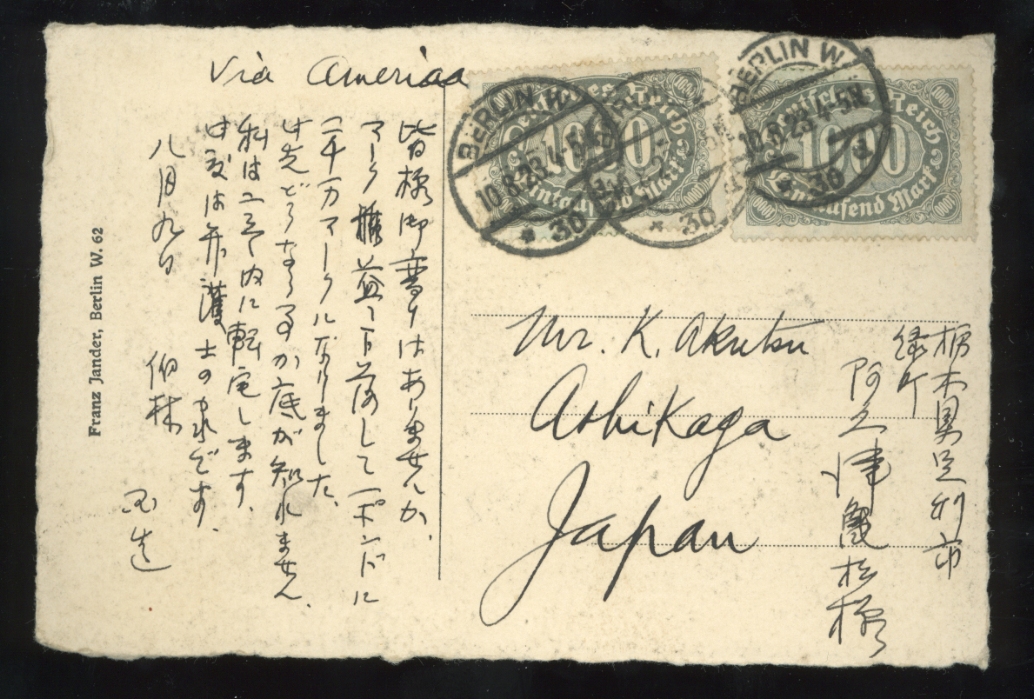 Via America
皆様御変りはありませんか、
マーク権益々下落して一ポンドに
二千万マークになりました
此先どうなるか底が知れません、
私は二三日内に転宅します、
中々は弁護士の家です、
八月九日 伯林
Franz Jander, Berlin W. 62
BERLIN W
10.8.23.4-5N.
* 30
Deutsches Reich
1000
Eintausend Mark
BERLIN W
10.8.23.4-5N.
* 30
Deutsches Reich
1000
Eintausend Mark
Mr. K. Akutsu
Ashikaga
Japan
栃木県足利市
緑町
阿久津亀松様